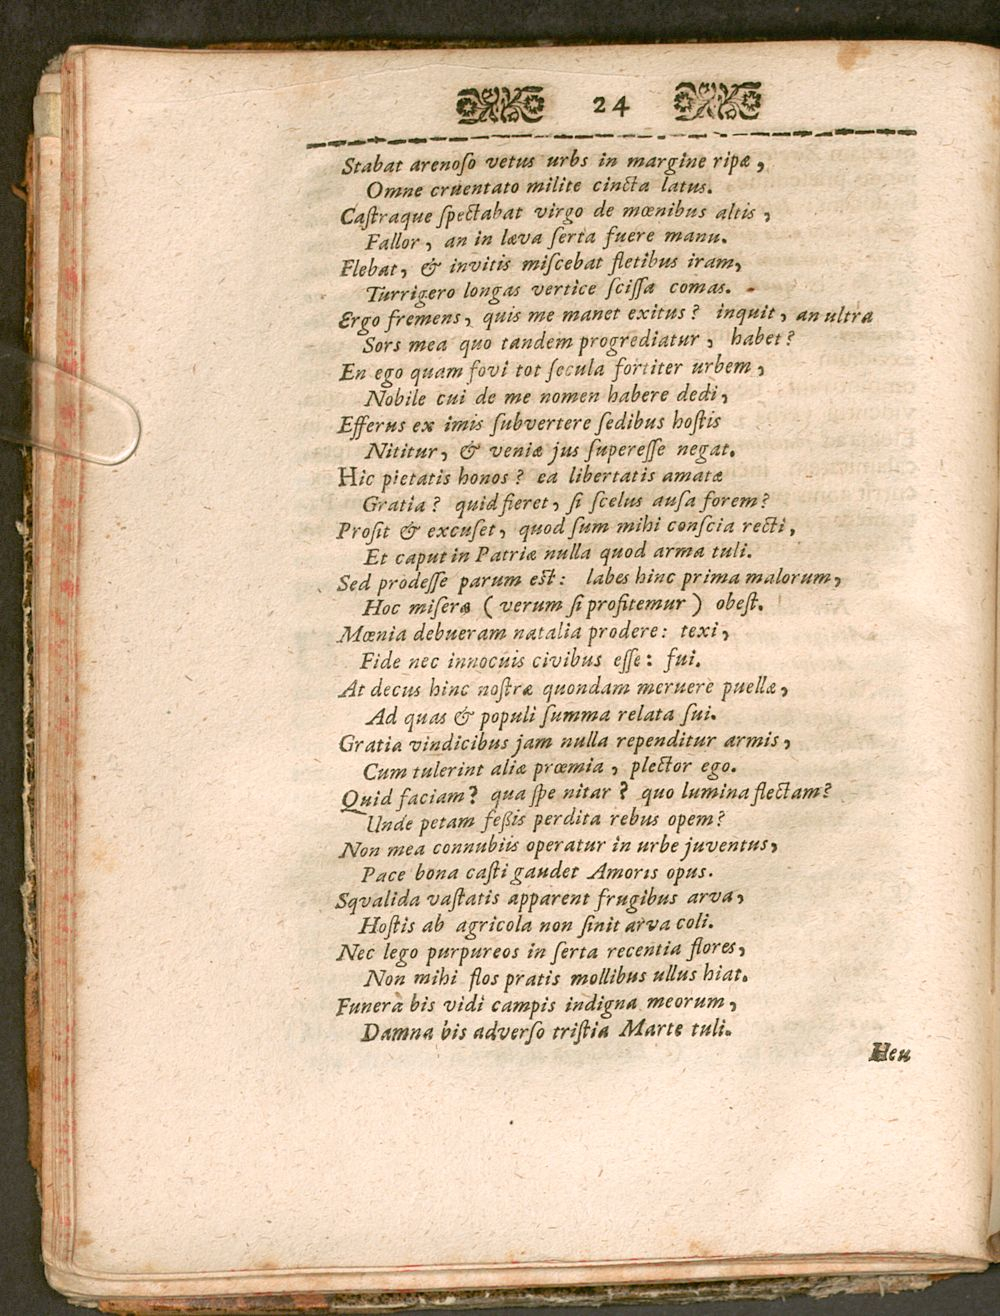 24
Stabat arenoſo vetus urbs in margine ripæ,
Omne cruentato milite cincta latus.
Caſtraque ſpectabat virgo de mœnibus altis,
Fallor, an in læva ſerta fuere manu.
Flebat, & invitis miſcebat fletibus iram,
Turrigero longas vertice ſciſſa comas.
Ergo fremens, quis me manet exitus? inquit, an ultra
Sors mea quo tandem progrediatur, habet?
En ego quam fovi tot ſecula fortiter urbem,
Nobile cui de me nomen habere dedi,
Efferus ex imis ſubvertere ſedibus hoſtis
Nititur, & veniæ jus ſupereſſe negat.
Hic pietatis honos? ea libertatis amatæ
Gratia? quid fieret, ſi ſcelus auſa forem?
Proſit & excuſet, quod ſum mihi conſcia recti,
Et caput in Patriæ nulla quod arma tuli.
Sed prodeſſe parum eſt: labes hinc prima malorum,
Hoc miſeræ (verum ſi profitemur) obeſt.
Mœnia debueram natalia prodere: texi,
Fide nec innocuis civibus eſſe: fui.
At decus hinc noſtræ quondam meruere puellæ,
Ad quas & populi ſumma relata ſui.
Gratia vindicibus jam nulla rependitur armis,
Cum tulerint aliæ prœmia, plector ego.
Quid faciam? qua ſpe nitar? quo lumina flectam?
Unde petam feßis perdita rebus opem?
Non mea connubiis operatur in urbe juventus,
Pace bona caſti gaudet Amoris opus.
Sqvalida vaſtatis apparent frugibus arva,
Hoſtis ab agricola non ſinit arva coli.
Nec lego purpureos in ſerta recentia flores,
Non mihi flos pratis mollibus ullus hiat.
Funera bis vidi campis indigna meorum,
Damna bis adverſo triſtia Marte tuli.
Heu